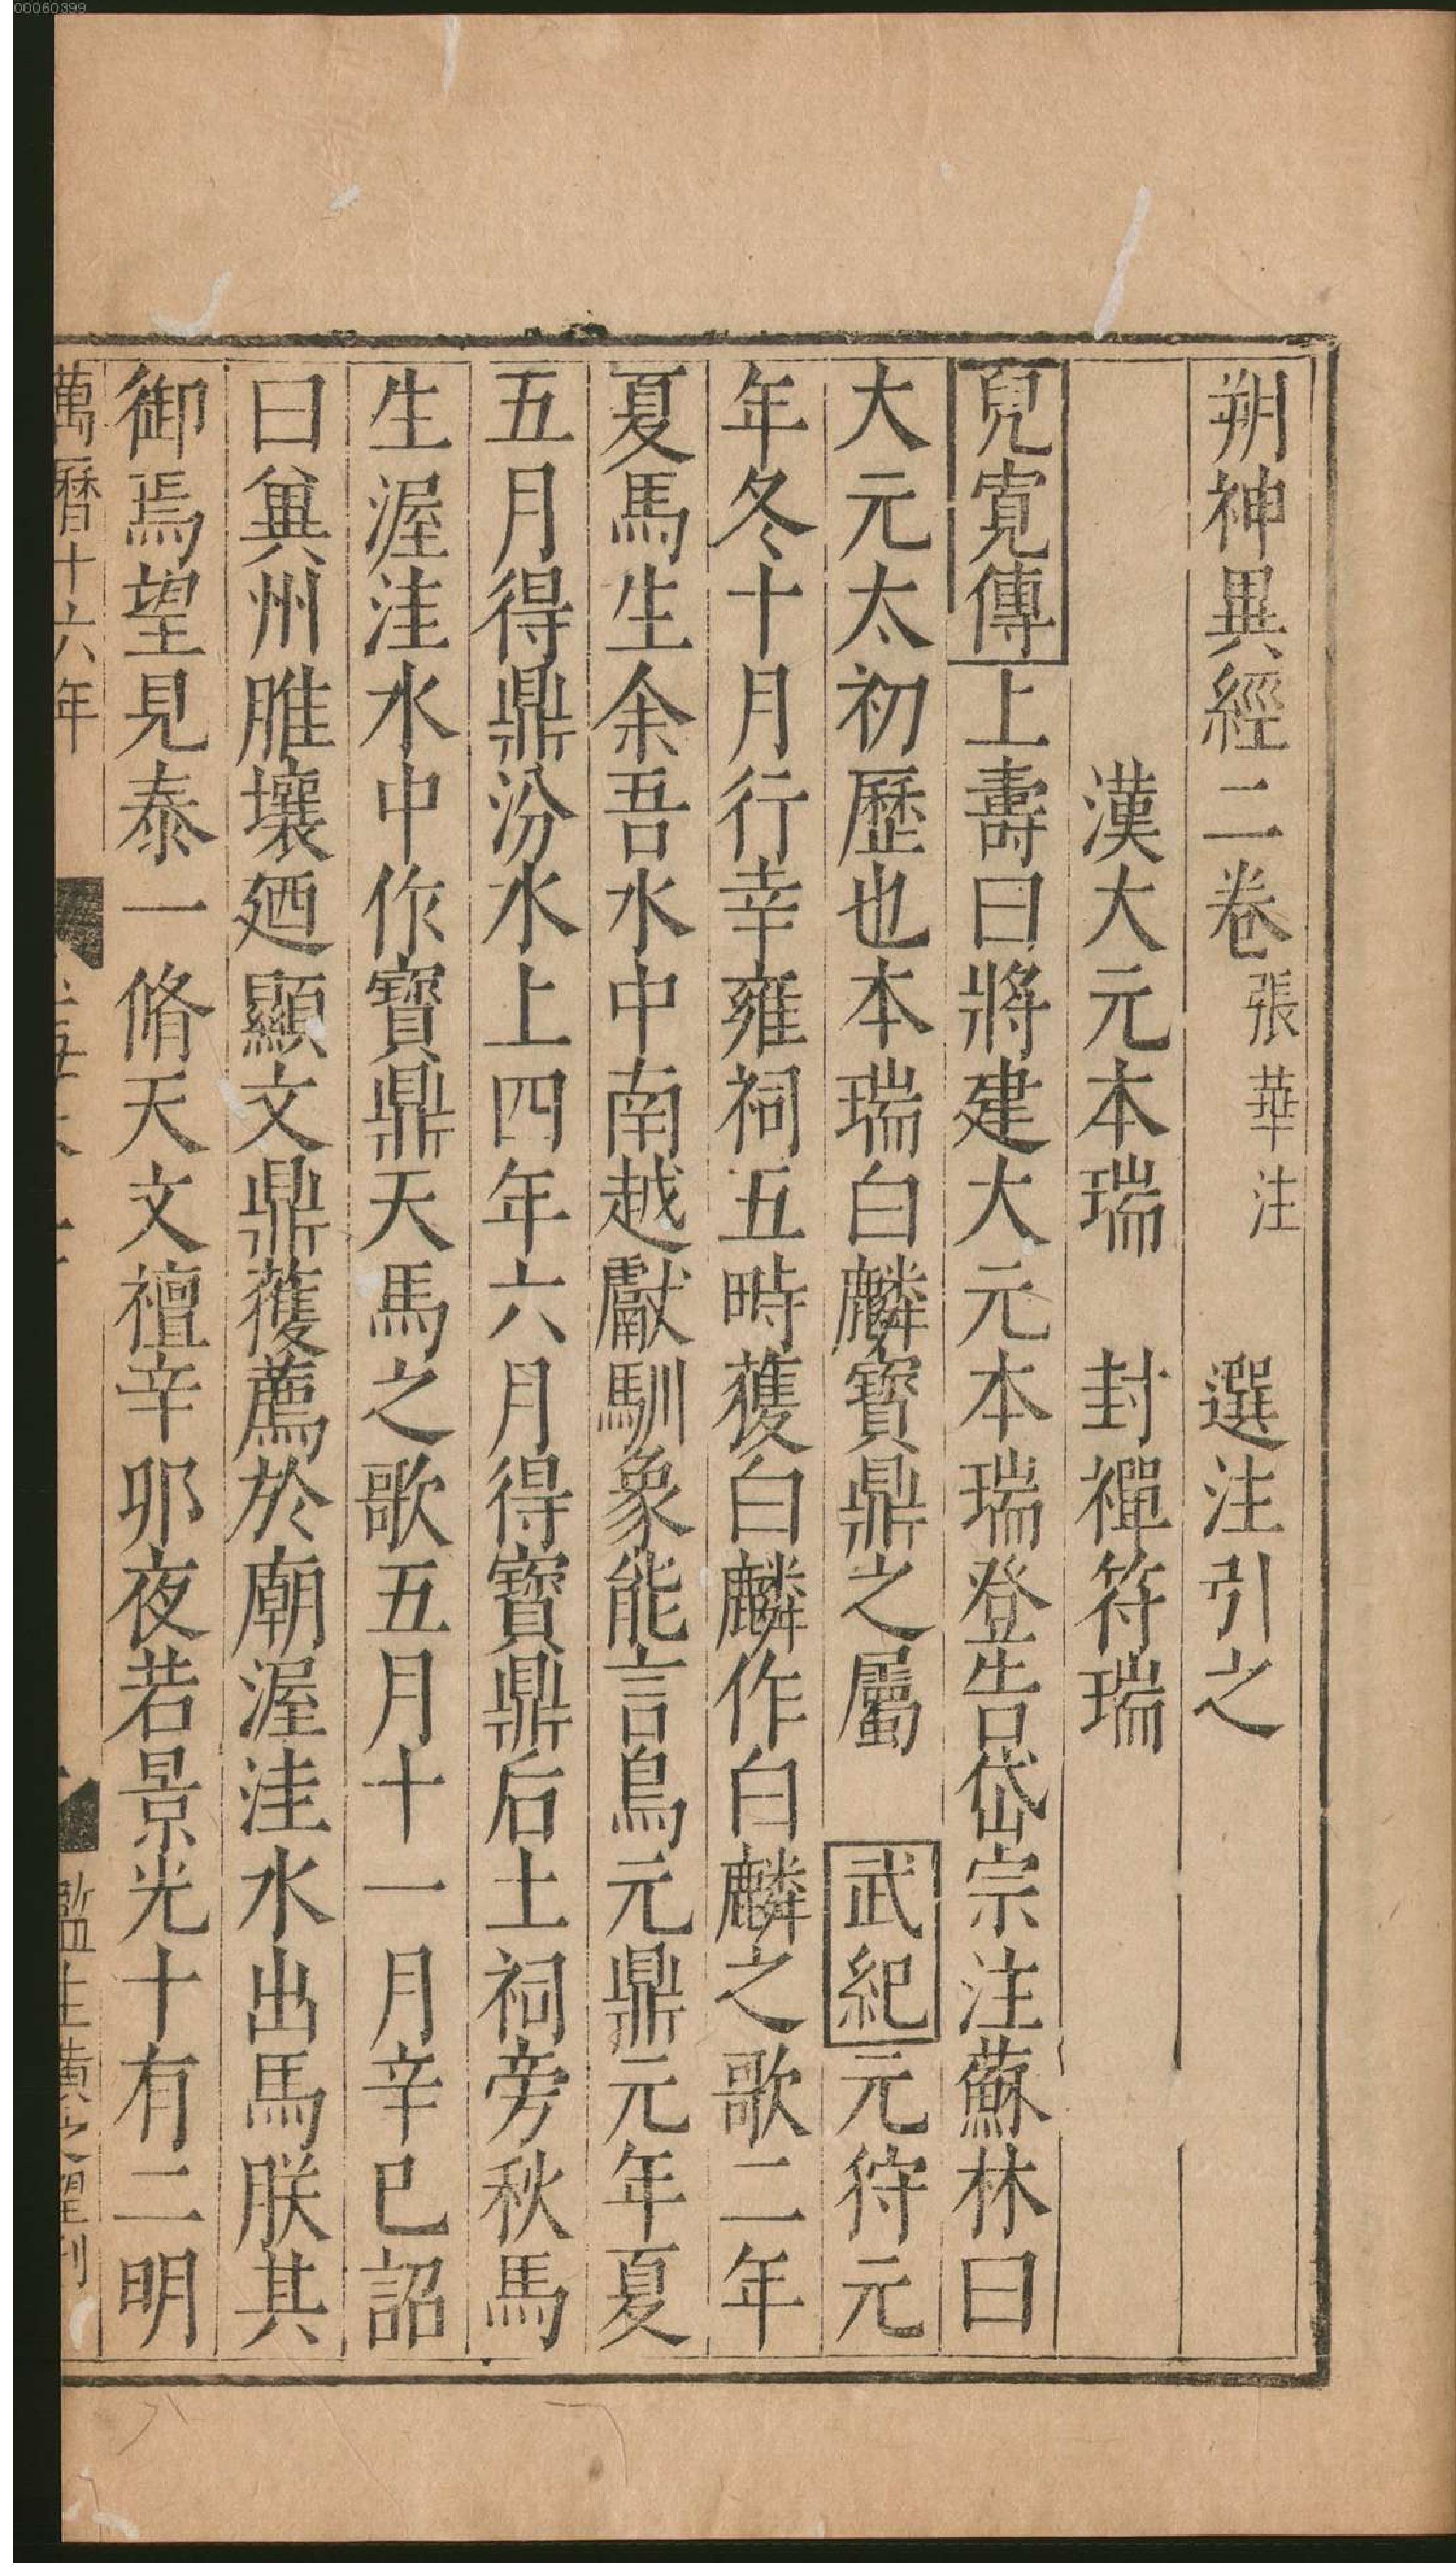 00060399
朔神異經二卷張華注　選注引之
漢大元本瑞　封禪符瑞
兒寬傳上壽曰將建大元本瑞登告岱宗注蘇林曰
大元太初歷也本瑞白麟寶鼎之屬　武紀元狩元
年冬十月行幸雍祠五畤獲白麟作白麟之歌二年
夏馬生余吾水中南越獻馴象能言鳥元鼎元年夏
五月得鼎汾水上四年六月得寶鼎后土祠旁秋馬
生渥洼水中作寶鼎天馬之歌五月十一月辛巳詔
曰兾州脽壤廼顯文鼎獲薦於廟渥洼水出馬朕其
御焉望見泰一脩天文襢辛卯夜若景光十有二明
萬曆十六年
監生黃之望刊